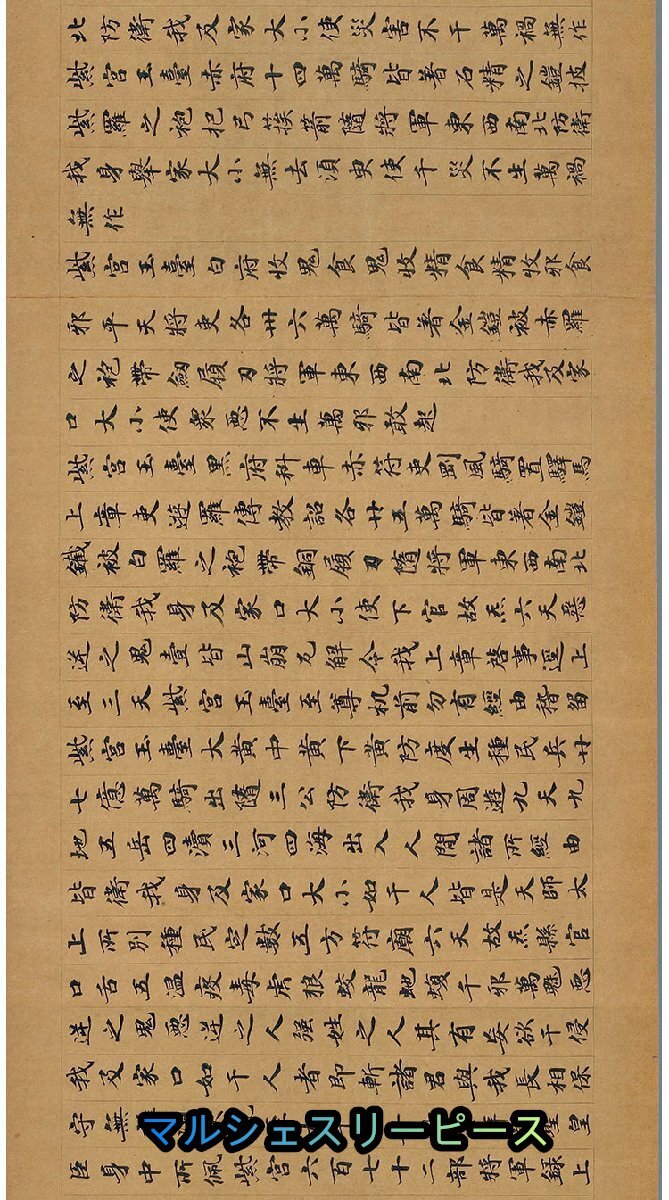 北防衛我及家大小使災害不干萬禍無作
紫宮玉臺赤府十四萬騎皆著石精之鎧披
紫羅之袍把弓挾箭隨將軍東西南北防衛
我身舉家大小無去須臾使千災不生萬禍
無作
紫宮玉臺白府收鬼食鬼收精食精收邪食
邪平天將吏各卅六萬騎皆著金鎧被赤羅
之袍帶劔履刃將軍東西南北防衛我及家
口大小使衆惡不生萬邪敢起
紫宮玉臺黑府科車赤符吏剛風騎置驛馬
上章吏遊羅傳教詔各廿五萬騎皆著金鎧
鐵被白羅之袍帶銅履刃隨將軍東西南北
防衛我身及家口大小使下官故炁六天惡
逆之鬼壹皆山崩瓦解令我上章啓事逕上
至三天紫宮玉臺至尊机前勿有經由稽留
紫宮玉臺大黄中黄下黄防度生種民兵廿
七億萬騎出隨三公防衛我身周遊九天九
地五岳四瀆三河四海出入人間諸所經由
皆衛我身及家口大小如干人皆是天師太
上所別種民定數五方符廟六天故炁縣官
口舌五温疫毒虎狼蛟龍虵蝮千邪萬魅惡
逆之鬼惡逆之人强姓之人其有妄欲干侵
我及家口如干人者即斬諸君與我長相保
守無皇
マルシェスリーピース
臣身中所佩紫宮六百七十二部將軍籙上